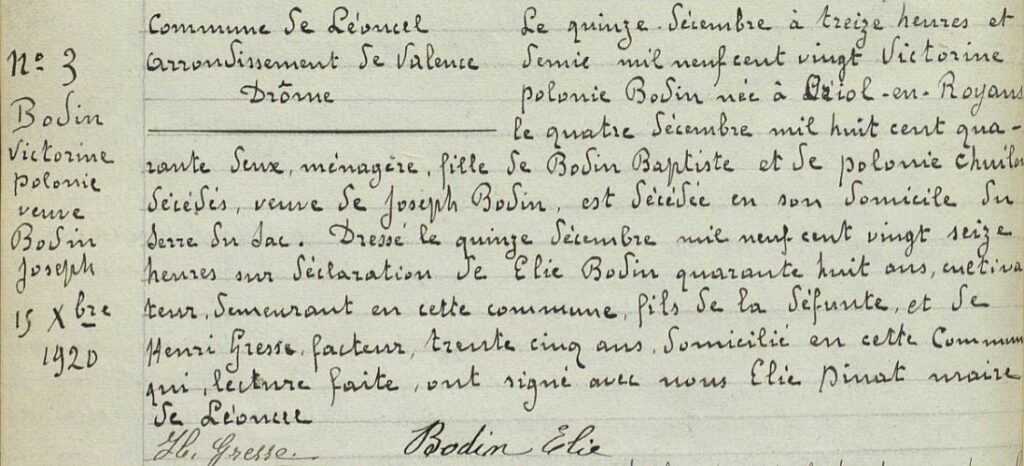 N° 3
Bodin
Victorine
Polonie
veuve
Bodin
Joseph
15 Xbre
1920
Commune de Léoncel
Arrondissement de Valence
Drôme
Le quinze décembre à treize heures et
demie mil neuf cent vingt Victorine
Polonie Bodin née à Oriol-en-Royans
le quatre décembre mil huit cent qua-
rante deux, ménagère, fille de Bodin Baptiste et de Polonie
décédés, veuve de Joseph Bodin, est décédée en son domicile du
Serre du Sac. Dressé le quinze décembre mil neuf cent vingt seize
heures sur déclaration de Elie Bodin quarante huit ans, cultiva
teur, demeurant en cette commune, fils de la défunte, et de
Henri Gresse, facteur, trente cinq ans, domicilié en cette Commun
qui, lecture faite, ont signé avec nous Elie Pinat maire
de Léoncel
H. Gresse. Bodin Elie